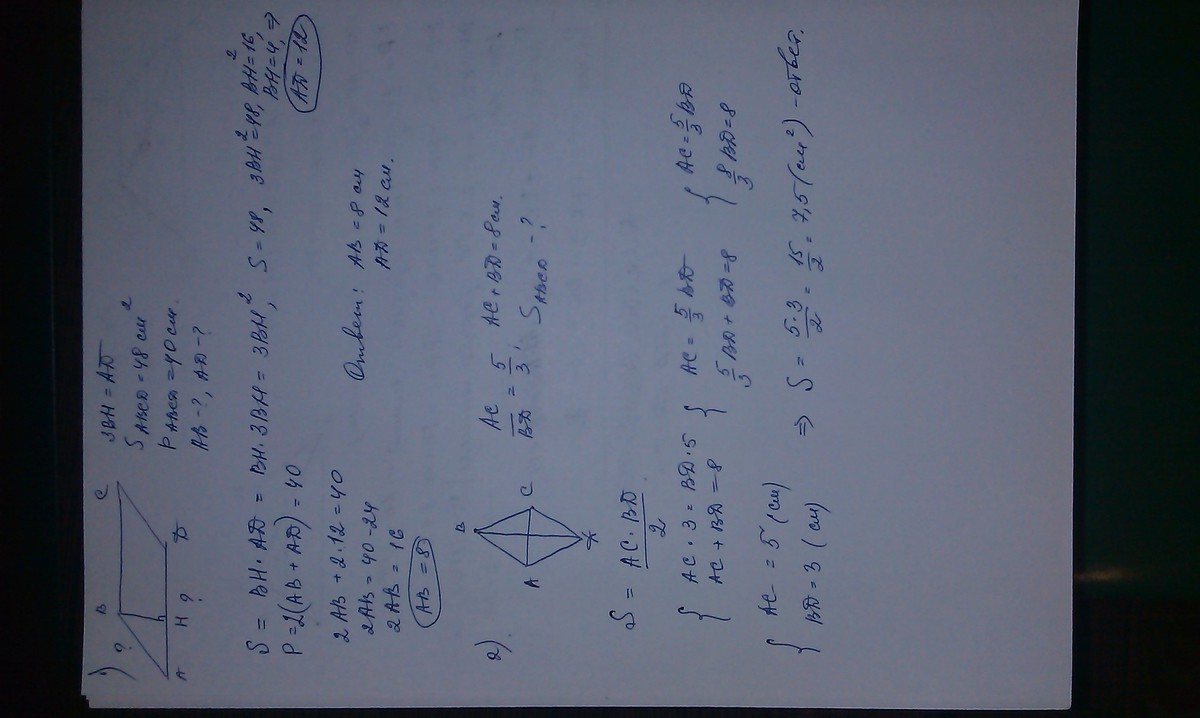 1)
? B C
A H ? D
3BH = AD
S ABCD = 48 см²
P ABCD = 40 см.
AB - ?, AD - ?
S = BH · AD = BH · 3BH = 3BH², S = 48, 3BH² = 48, BH² = 16,
BH = 4, ⇒
AD = 12
P = 2(AB + AD) = 40
2AB + 2·12 = 40
2AB = 40 - 24
2AB = 16
AB = 8
Ответ: AB = 8 см
AD = 12 см.
2)
B
A C
AC/BD = 5/3, AC + BD = 8 см.
S ABCD - ?
S = AC · BD / 2
{ AC · 3 = BD · 5 { AC = 5/3 BD { AC = 5/3 BD
AC + BD = 8 5/3 BD + BD = 8 8/3 BD = 8
{ AC = 5 (см)
BD = 3 (см) ⇒ S = 5·3/2 = 15/2 = 7,5 (см²) - ответ.